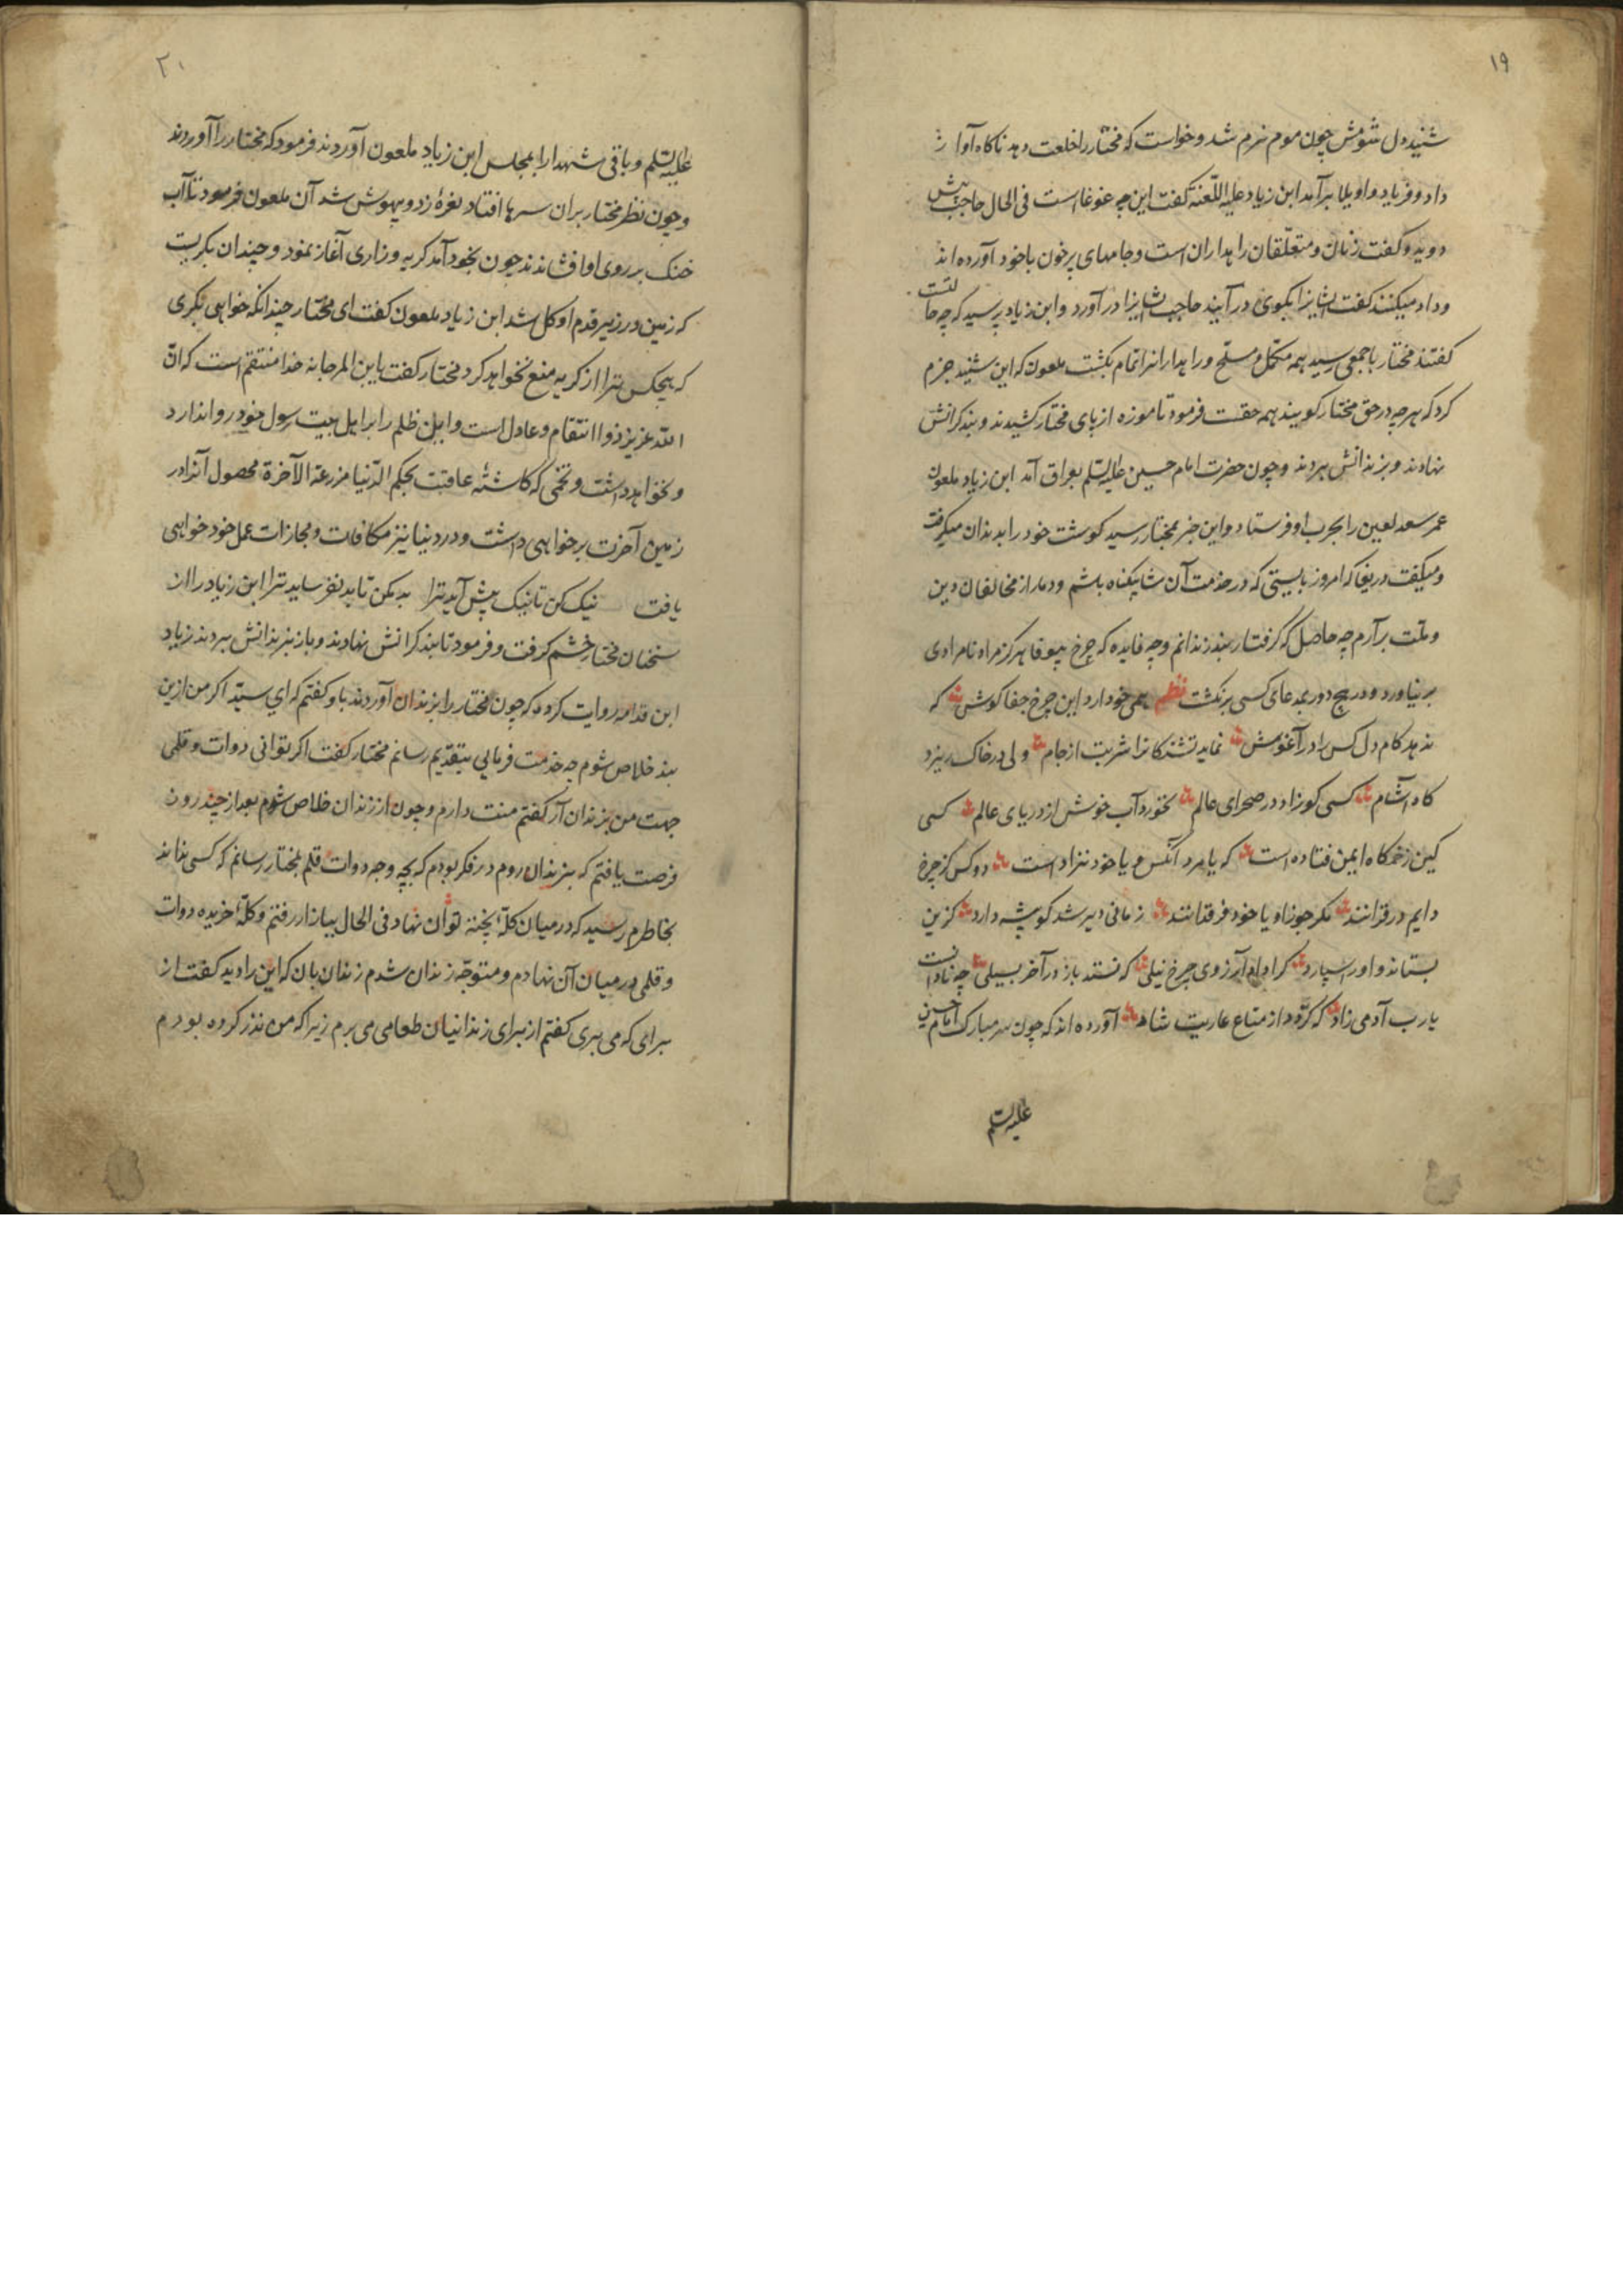 ۱۹
شنید دل شومش چون موم نرم شد و خواست که مختار را خلعت دهد ناکاه آواز
داد و فریاد و اویلا برآمد ابن زیاد علیه اللّعنه کفت این چه غوغا است فی الحال حاجب پیش
دوید و کفت زنان و متعلّقان راهداران است و جامهای پرخون با خود آورده اند
و داد میکنند کفت ایشانرا بکوی درآیند حاجب ایشانرا درآورد و ابن زیاد پرسید که چه حالتست
کفتند مختار با جمعی رسید همه مکمّل و مسلّح و راهدارانرا تمام بکشت ملعون که این شنید جزم
کرد که هرچه در حق مختار کویند همه حقست فرمود تا موزه از پای مختار کشیدند و بند کرانش
نهادند و بزندانش بردند و چون حضرت امام حسین علیه السّلم بعراق آمد ابن زیاد ملعون
عمر سعد لعین را بحرب او فرستاد و این خبر بمختار رسید کوشت خود را بدندان میکرفت
و میکفت دریغا که امروز بایستی که در خدمت آن شاه بیکناه باشم و دمار از مخالفان دین
و ملّت برآرم چه حاصل که کرفتار بند زندانم و چه فایده که چرخ بیوفا هرکز مراد نامرادی
برنیاورد و در هیچ دور بمدعای کسی برنکشت نظم همی خو دارد این چرخ جفا کوش که
ندهد کام دل کس را در آغوش نماید تشنکانرا شربت از جام ولی در خاک ریزد
کاه آشام کسی کو زاد در صحرای عالم نخورد آب خوش از دریای عالم کسی
کین زخمکاه ایمن فتاده است که یا مرد آنکس و یا خود نزاد است دو کس کز چرخ
دایم در قرانند مکر جوزا و یا خود فرقدانند زمانی دیر شد کو پیشه دارد کزین
بستاند و او را سپارد کرا داد آرزوی چرخ نیلی که نستد باز در آخر بسیلی چه نادانست
یا رب آدمی زاد که کردد از متاع عاریت شاد آورده اند که چون سر مبارک امام حسین
علیه السلم
۲۰
علیه السّلم و باقی شهدا را بمجلس ابن زیاد ملعون آوردند فرمود که مختار را آوردند
و چون نظر مختار بران سرها افتاد نعرهٔ زد و بیهوش شد آن ملعون فرمود تا آب
خنک بر روی او افشاندند چون بخود آمد کریه و زاری آغاز نمود و چندان بکریست
که زمین در زیر قدم او کل شد ابن زیاد ملعون کفت ای مختار چندانکه خواهی بکری
که هیچکس ترا از کریه منع نخواهد کرد مختار کفت یا بن المرجانه خدا منتقم است که انّ
اللّه عزیز ذو انتقام و عادل است و این ظلم را بر اهل بیت رسول خود روا ندارد
و نخواهد داشت و تخمی که کاشتهٔ عاقبت بحکم الدّنیا مزرعة الآخرة محصول آنرا در
زمین آخرت بر خواهی داشت و در دنیا نیز مکافات و مجازات عمل خود خواهی
یافت نیک کن تا نیک پیش آید ترا بد مکن تا بد نفرساید ترا ابن زیاد را از
سخنان مختار خشم کرفت و فرمود تا بند کرانش نهادند و باز بزندانش بردند زیاد
ابن قدامه روایت کرده که چون مختار را بزندان آوردند باو کفتم که ای سیّد اکر من ازین
بند خلاص شوم چه خدمت فرمایی بتقدیم رسانم مختار کفت اکر توانی دوات و قلمی
جهت من بزندان آر کفتم منت دارم و چون از زندان خلاص شوم بعد از چند روز
فرصت یافتم که بزندان روم در فکر بودم که بچه وجه دوات و قلم بمختار رسانم که کسی نداند
بخاطرم رسید که در میان کلّهٔ پخته توان نهاد فی الحال ببازار رفتم و کلّهٔ خریده دوات
و قلمی در میان آن نهادم و متوجّه زندان شدم زندان بان که این را دید کفت از
برای که می بری کفتم از برای زندانیان طعامی می برم زیرا که من نذر کرده بودم